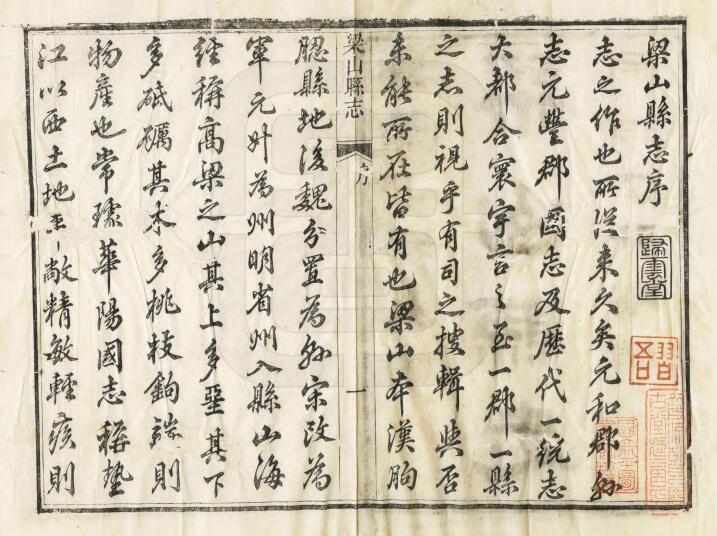 梁山縣志序
志之作也所從来久矣元和郡縣
志元豐郡國志及歷代一統志
大都合寰宇言之至一郡一縣
之志則視乎有司之搜輯與否
未能所在皆有也梁山本漢朐
梁山縣志
序
一
䏰縣地後魏分置為縣宋改為
軍元升為州明省州入縣山海
經稱高梁之山其上多堊其下
多砥礪其木多桃枝鉤端則
物產也常璩華陽國志稱墊
江以西土地平敞精敏輕疾則